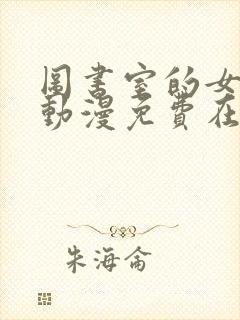 圖書室的女
動漫免費在
朱海侖